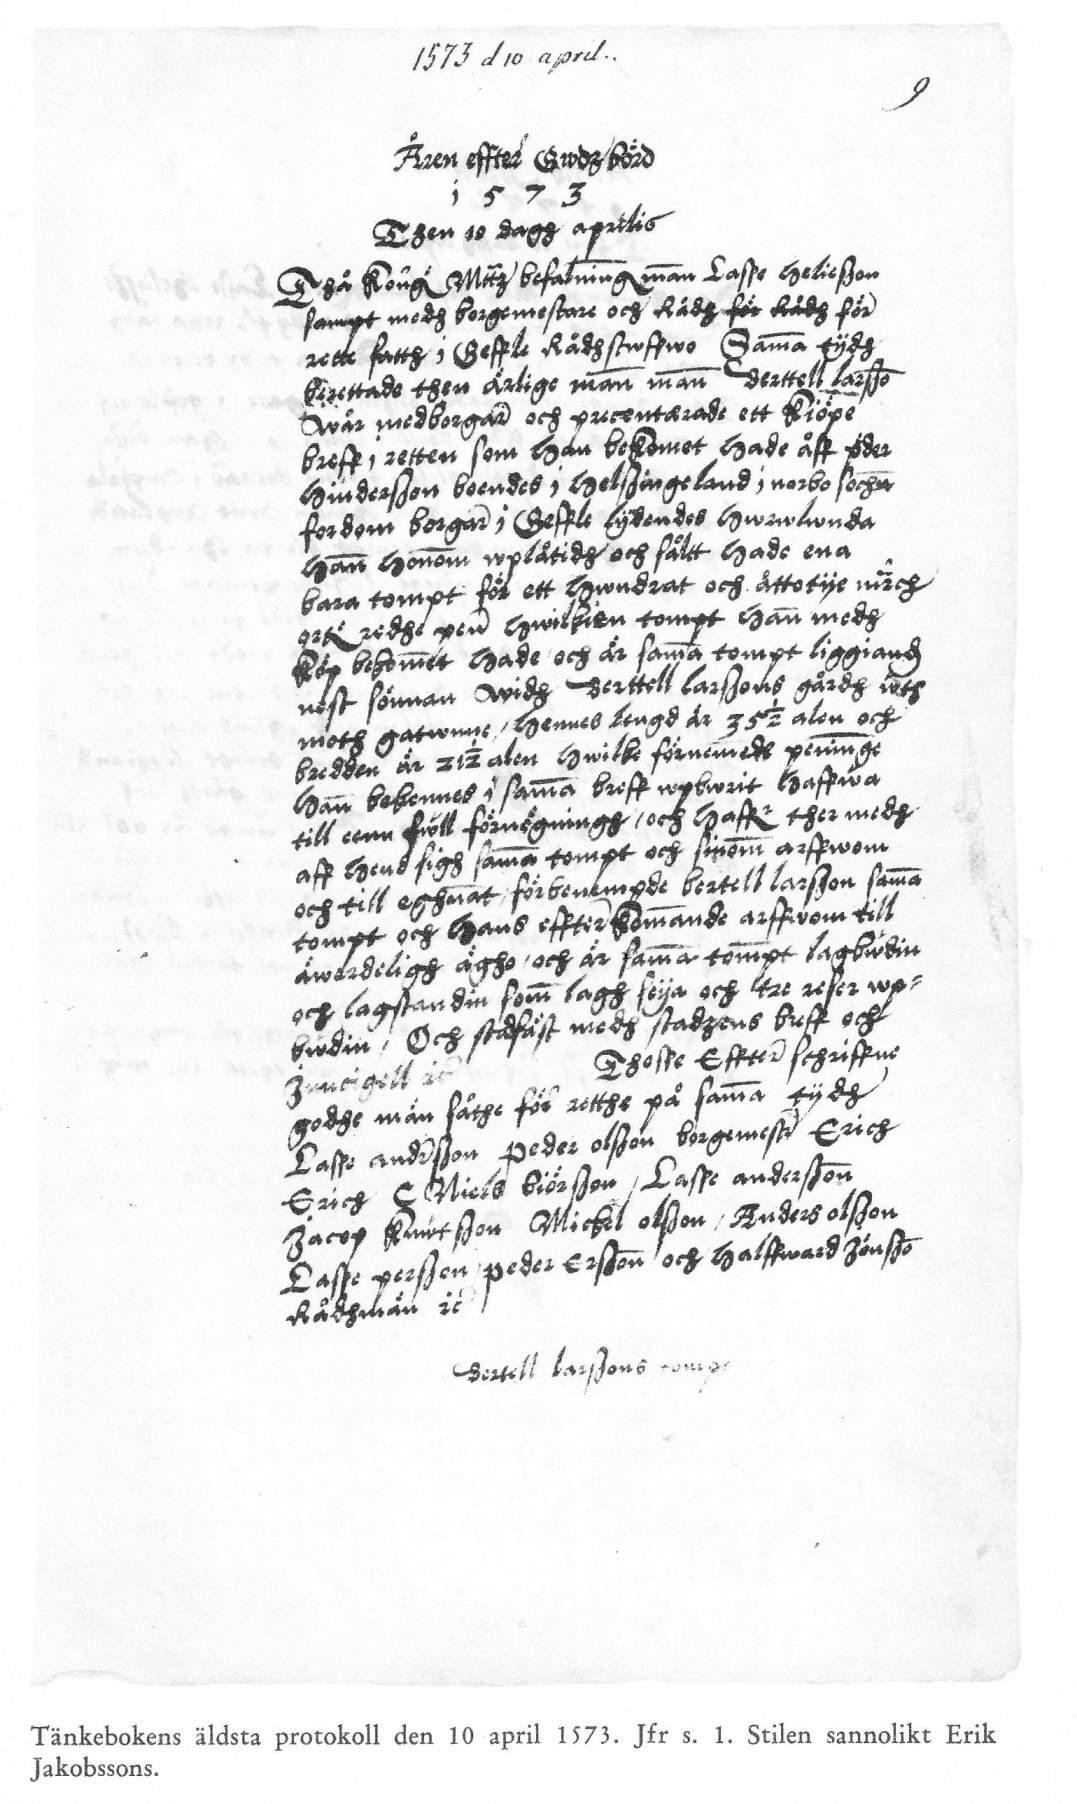 1573 d 10 april.
9
Åren effter Gwdz börd
1573
Then 10 dagh aprilis
Thå Kong Mttz befalningzman Lasse Helieszon
sampt medh borgemestare och Rådh för Rådh för
rette satth i Geffle Rådhstwffwo Samma tijdh
berettade then ärlige man man Berttell larsszo
Wår medborgar och precenterade ett Kiöpe
breff i retten som han bekomet hade åff peder
Hinderszon boendes i Helsingeland i norbo sochn
fordom borgar i Geffle lydendes hwrwlwnda
han honom wplåtidh och såltt hade ena
bara tompt för ett hwndrat och åttotije march
ortg redhe pen hwilken tompt han medh
Köp bekommet hade och är samma tompt liggiand
nest sönnan Widh Berttell larszons gårdh wth
moth gatwnne, Hennes lengd är 35½ alen och
bredden är 21½ alen hwilke förnemde peninge
han bekennes i samma breff wpbwrit haffwa
till eenn fwll förnögningh, och haffr ther medh
aff hend sigh samma tompt och sinom arffwom
och till eghnat förbenempde bertell larszon samma
tompt och hans effterkommande arffwom till
äwerdeligh ägho, och är samma tompt lagbwdin
och lagstandin som lagh seija och tre reser wp=
bwdin, Och stadfäst medh stadzens breff och
Incigell etc Thesse Effter schriffne
godhe män såthe för retthe på samma tijdh
Lasse anderszon Peder olszon borgemestr Erich
Erich Niels biörszon, Lasse anderszon
Jacop Knwtszon Mickel olszon, Anders olszon
Lasse perszen peder Erszon och halffward Jönszo
Rådhmän etc
Bertell larszons tompt
Tänkebokens äldsta protokoll den 10 april 1573. Jfr s. 1. Stilen sannolikt Erik
Jakobssons.